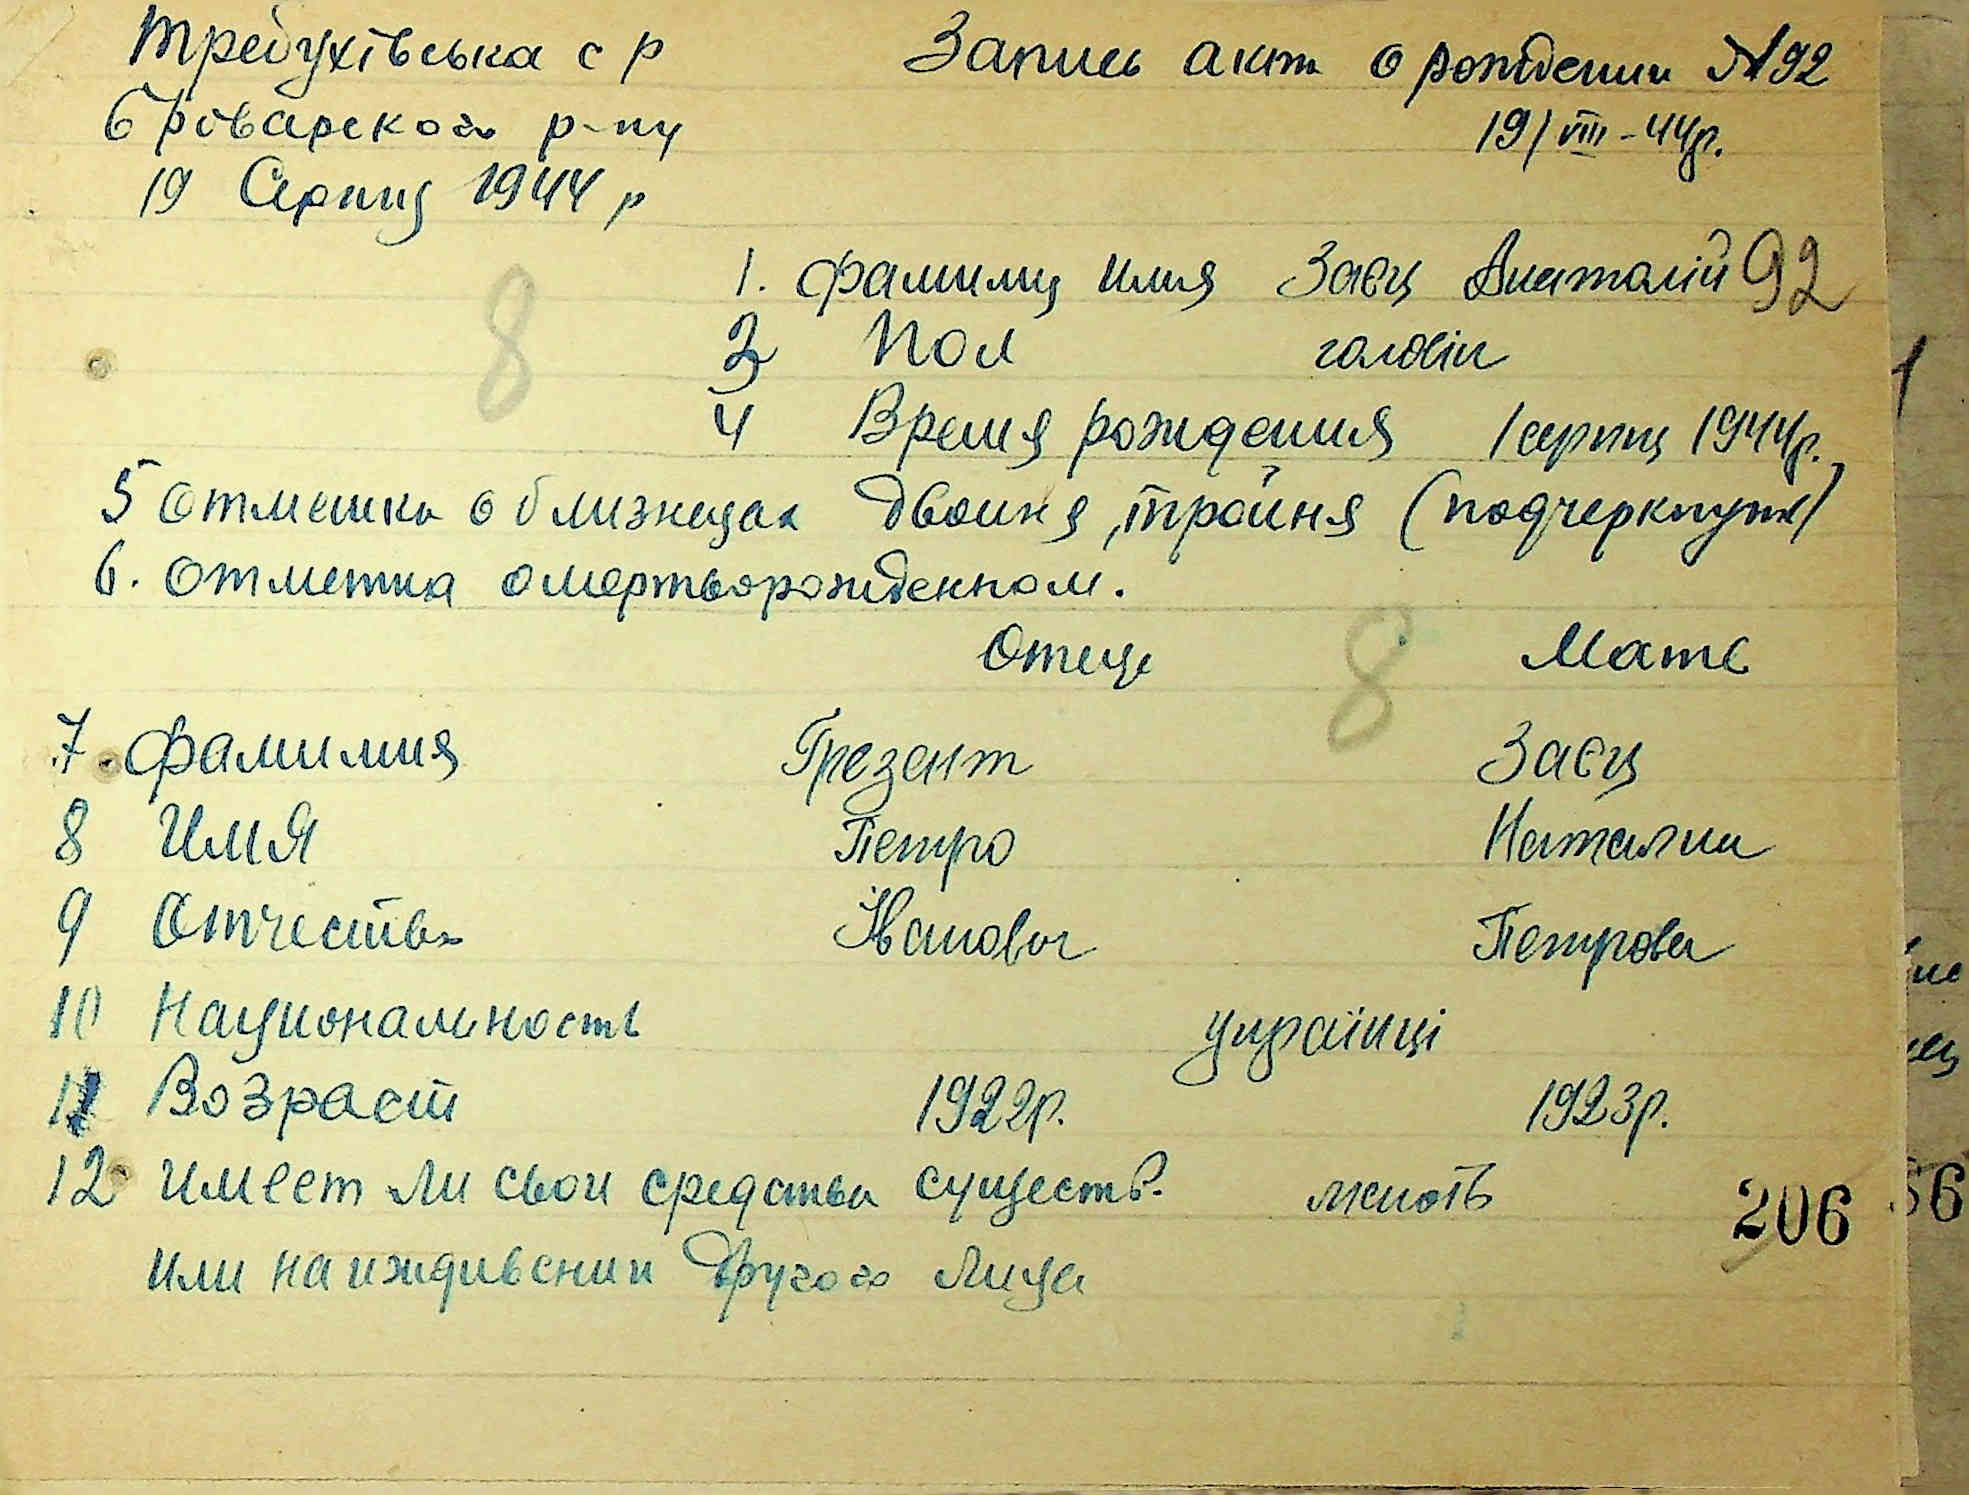 Требухівська с р Запись акт о рождении №92
Броварского р-ну 19/VIII-44р.
19 Серпня 1944 р
1. Фамилия имя Заєц Анатолій 92
2 Пол чоловік
3
4 Время рождения 1 серпня 1944р.
5 Отметка о близнецах двойня, тройня (подчеркнуть)
6. Отметка о мертворожденном.
8
Отец 8 Мать
7. Фамилия Грезент Заєц
8 Имя Петро Наталии
9 Отчество Іванович Петровна
10 Национальность українці
11 Возраст 1922р. 1923р.
12 Имеет ли свои средства существ.
или на иждивении другого лица
206